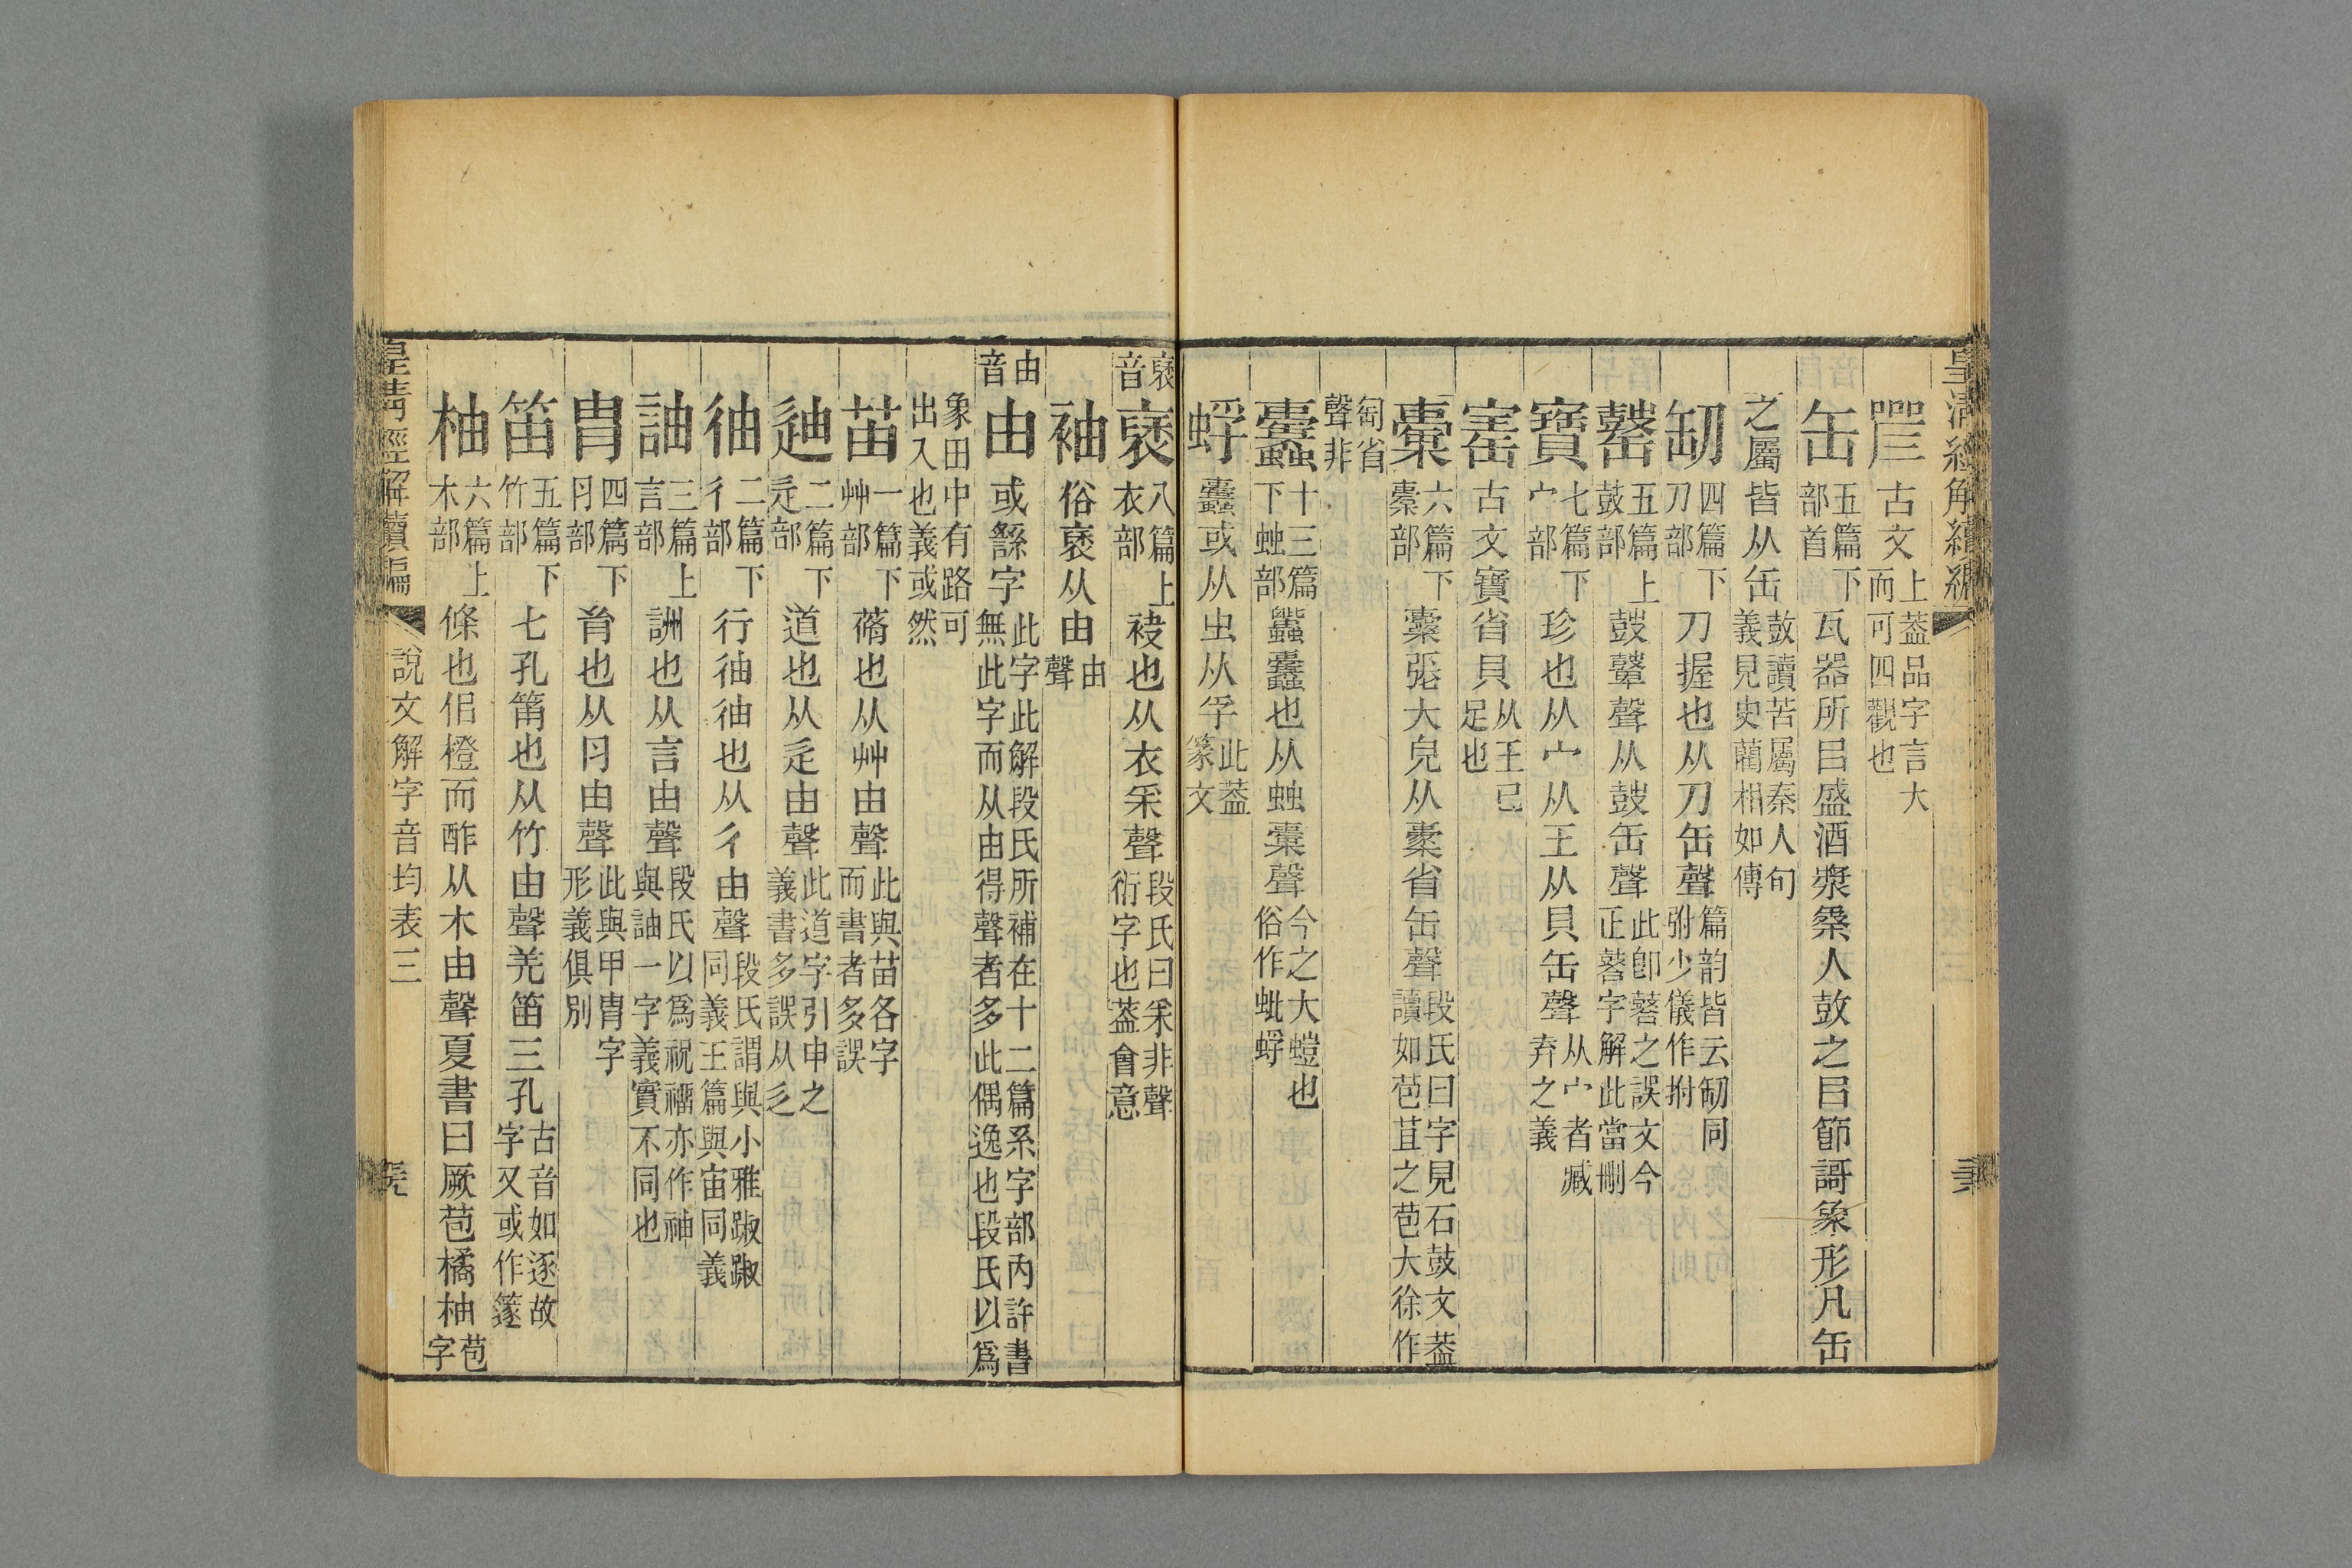 古文上葢品字言大而可四觀也
缶五篇下部首瓦器所㠯盛酒漿秦人鼓之㠯節謌象形凡缶
之屬皆从缶鼓讀苦屬秦人句義見史藺相如傳
𠛎四篇下刀部刀握也从刀缶聲篇韵皆云𠛎同弣少儀作拊
五篇上鼓部鼓鼙聲从鼓缶聲此卽鼛之誤文今正鼛字解此當刪
寶七篇下宀部珍也从宀从王从貝缶聲从宀者臧弆之義
古文寶省貝从王已足也
橐六篇下㯻部橐張大皃从㯻省缶聲段氏曰字見石鼓文葢讀如苞苴之苞大徐作
匋省聲非
蠹十三篇下䖵部螶蠹也从䖵橐聲今之大螘也俗作蚍蜉
蜉蠹或从虫从孚此葢篆文
褎音
褎八篇上衣部袂也从衣𥝩聲段氏曰𥝩非聲衍字也葢會意
袖俗褎从由由聲
由音
由或繇字此字此解段氏所補在十二篇系字部內許書無此字而从由得聲者多此偶逸也段氏以爲
象田中有路可出入也義或然
苗一篇下艸部蓨也从艸由聲此與苗各字而書者多誤
迪二篇下辵部道也从辵由聲此道字引申之義書多誤从廴
㣙二篇下彳部行㣙㣙也从彳由聲段氏謂與小雅踧踧同義王篇與宙同義
訕三篇上言部詶也从言由聲段氏以爲祝𥛆亦作神與訕一字義實不同也
胄四篇下冃部胤也从冃由聲此與甲冑字形義俱別
笛五篇下竹部七孔筩也从竹由聲羌笛三孔古音如逐故字又或作篴
柚六篇上木部條也佀橙而酢从木由聲夏書曰厥苞橘柚苞字
皇淸經解續編 說文解字音均表三